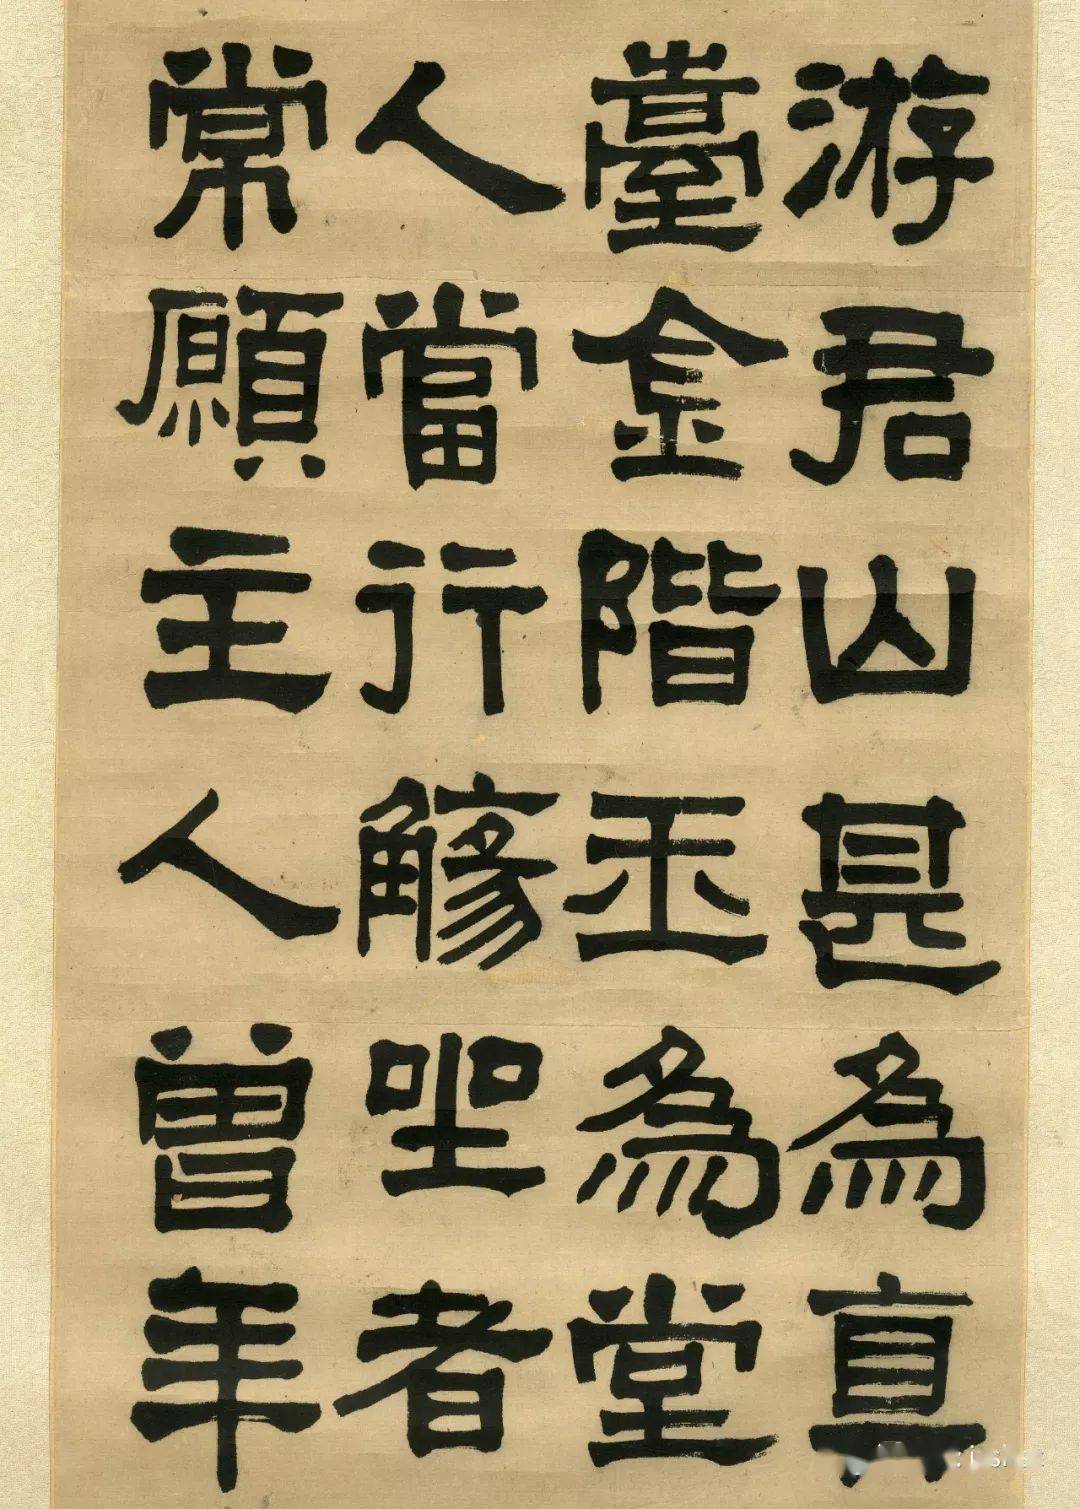 游君山甚為真
臺金階玉為堂
人當行觴坐者
常願主人曾年